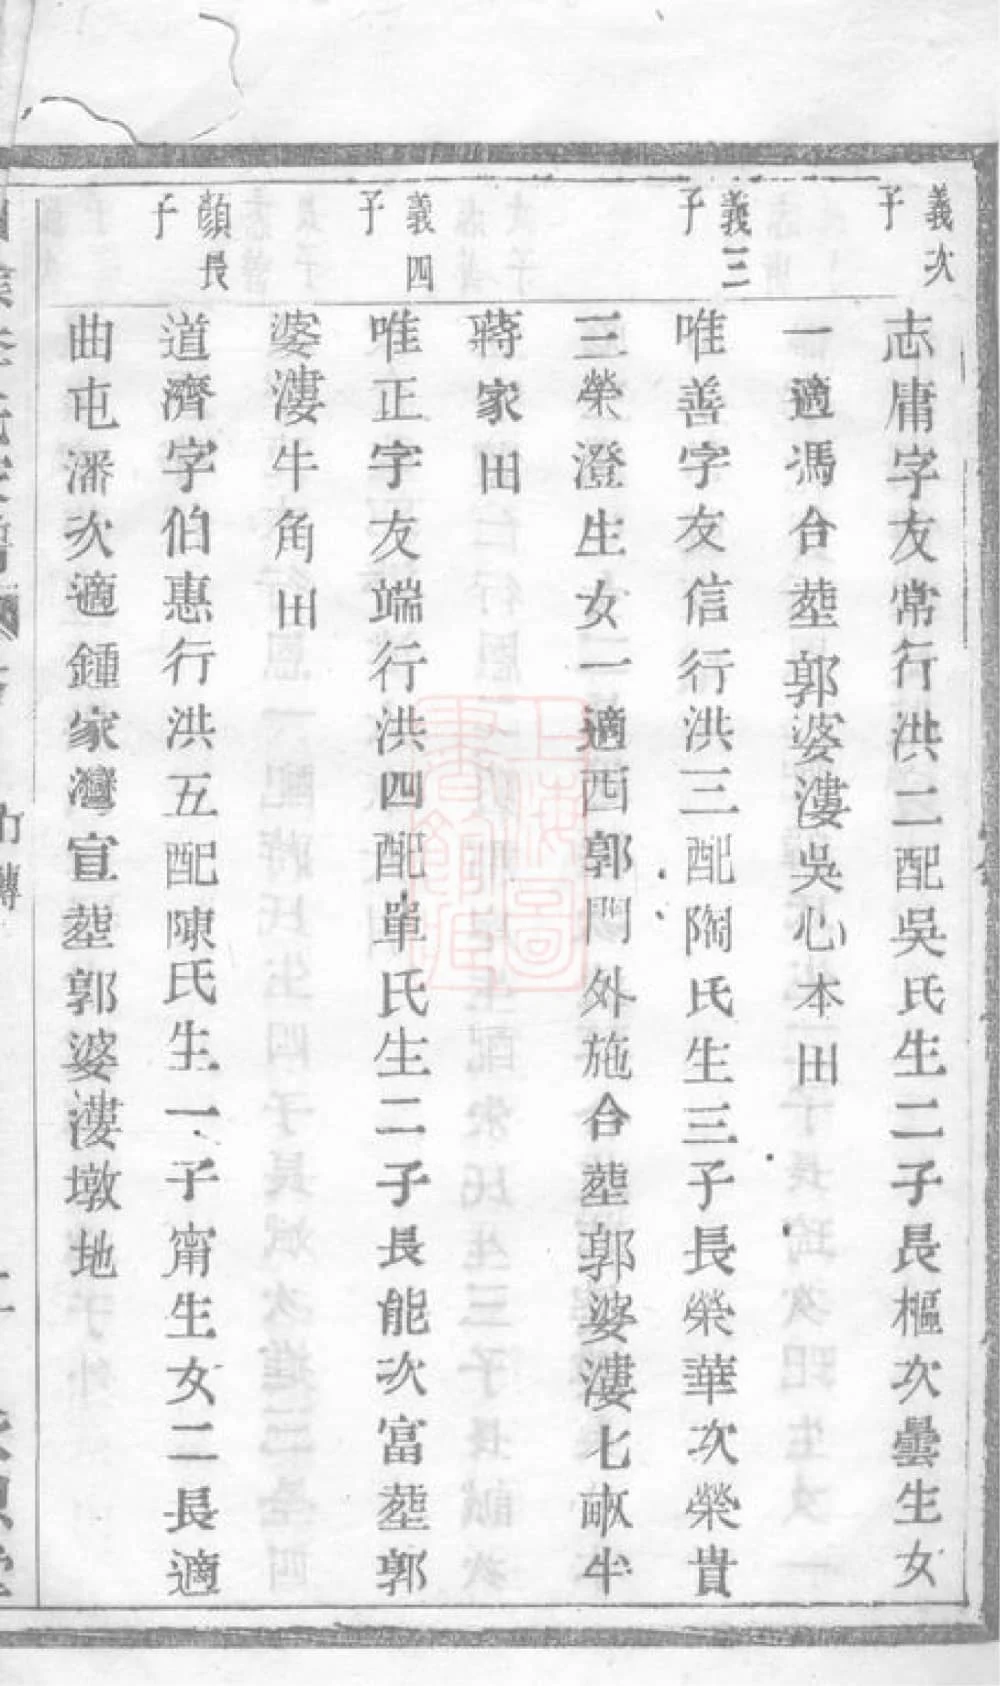 義次子
志庸字友常行洪二配吳氏生二子長樞次曇生女
一適馮合塟郭婆漊吳心本田
義三子
唯善字友信行洪三配陶氏生三子長榮華次榮貴
三榮澄生女一適西郭門外施合塟郭婆漊七畝半
蔣家田
義四子
唯正字友端行洪四配單氏生二子長能次富塟郭
婆漊牛角田
顏長子
道濟字伯惠行洪五配陳氏生一子甯生女二長適
曲屯潘次適鍾家灣宣塟郭婆漊墩地
上海圖書館藏